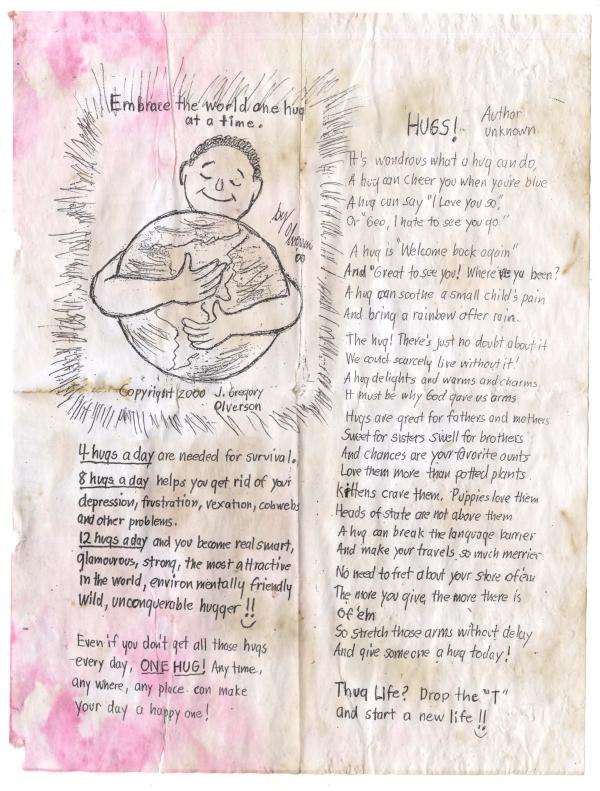 Embrace the world one hug
at a time.
by
Olverson
00
Copyright 2000 J. Gregory
Olverson
4 hugs a day are needed for survival.
8 hugs a day helps you get rid of your
depression, frustration, vexation, cobwebs
and other problems.
12 hugs a day and you become real smart,
glamourous, strong, the most attractive
in the world, environmentally friendly
wild, unconquerable hugger!!
Even if you don't get all those hugs
every day, ONE HUG! Any time,
any where, any place can make
your day a happy one!
HUGS!
Author
unknown
It's wondrous what a hug can do,
A hug can cheer you when you're blue
A hug can say "I Love you so",
Or "Gee, I hate to see you go."
A hug is "Welcome back again"
And "Great to see you! Where've yu been?
A hug can soothe a small child's pain
And bring a rainbow after rain.
The hug! There's just no doubt about it
We could scarcely live without it!
A hug delights and warms and charms
It must be why God gave us arms
Hugs are great for fathers and mothers
Sweet for sisters swell for brothers
And chances are your favorite aunts
Love them more than potted plants.
Kittens crave them. Puppies love them
Heads of state are not above them
A hug can break the language barrier
And make your travels so much merrier
No need to fret about your store of 'em
The more you give, the more there is
of 'em
So stretch those arms without delay
And give someone a hug today!
Thug Life? Drop the "T"
and start a new life!!